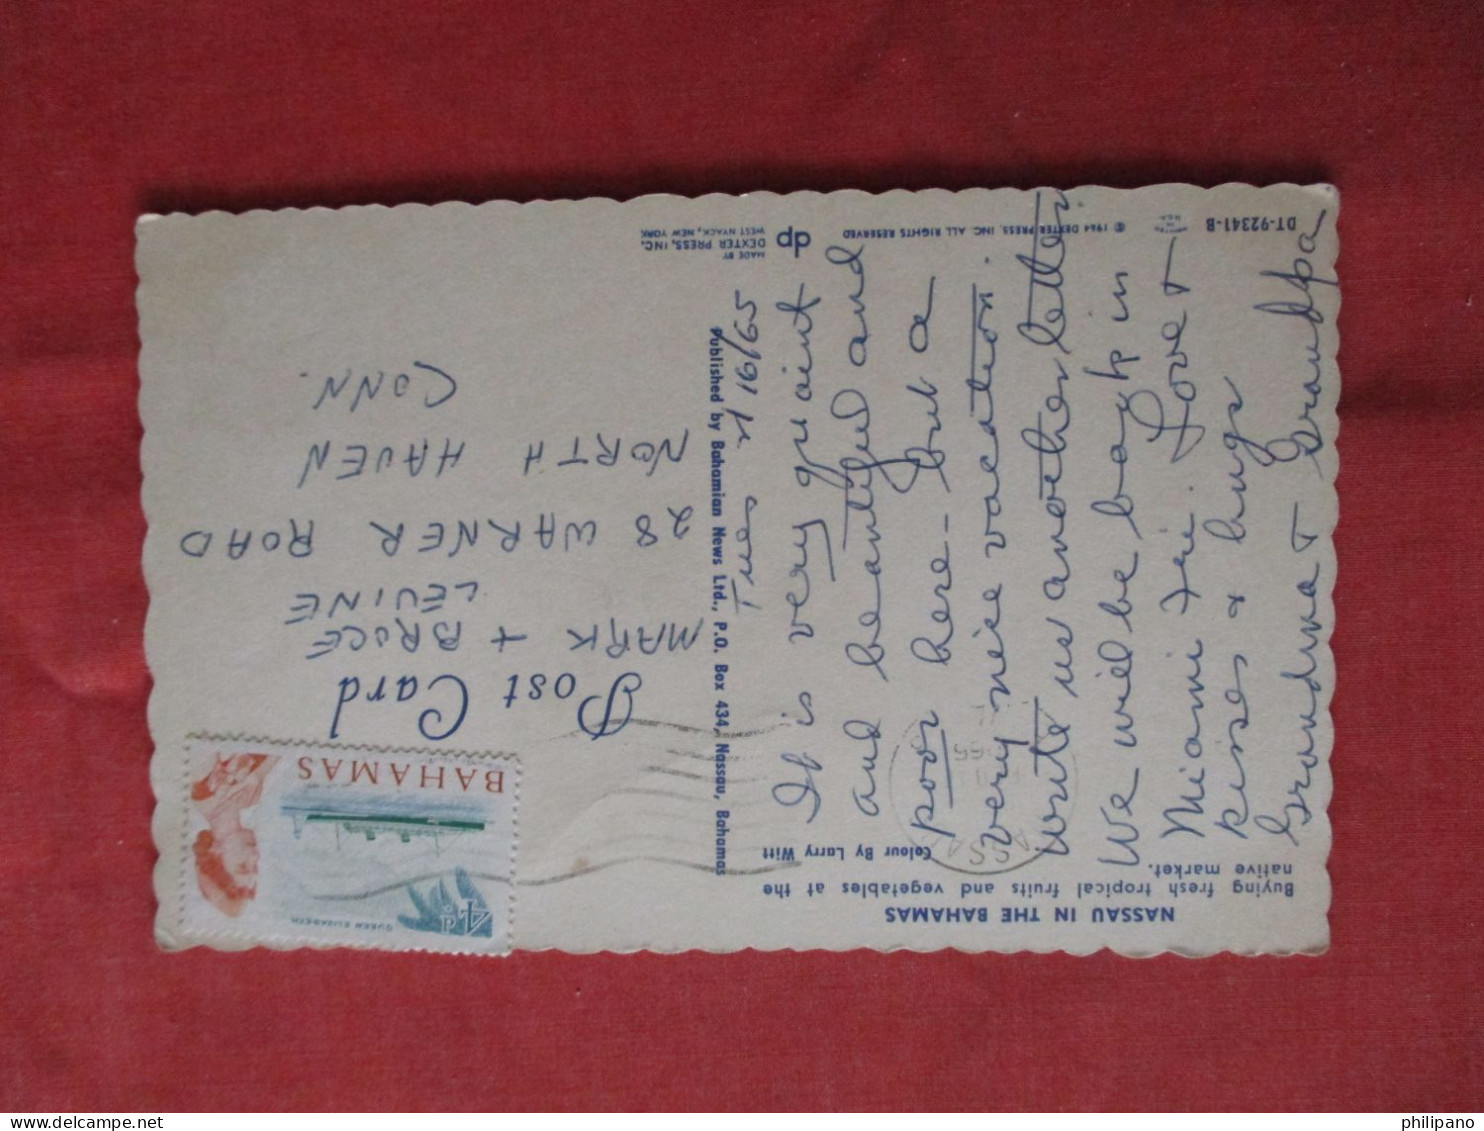 NASSAU IN THE BAHAMAS
Buying fresh tropical fruits and vegetables at the
native market.
Colour By Larry Witt
Tues 2/16/65
It is very quaint
and beautiful and
poor here - but a
very nice vacation.
Write us another letter.
We will be back in
Miami Fri. Love +
kisses & hugs
Grandma + Grandpa
DT-92341-B
© 1964 DEXTER PRESS, INC. ALL RIGHTS RESERVED
dp
MADE BY
DEXTER PRESS, INC.
WEST NYACK, NEW YORK
Published by Bahamian News Ltd., P.O. Box 434, Nassau, Bahamas
Post Card
BAHAMAS
4d
QUEEN ELIZABETH
MARK + BRUCE
LEVINE
28 WARNER ROAD
NORTH HAVEN
CONN.
philipano